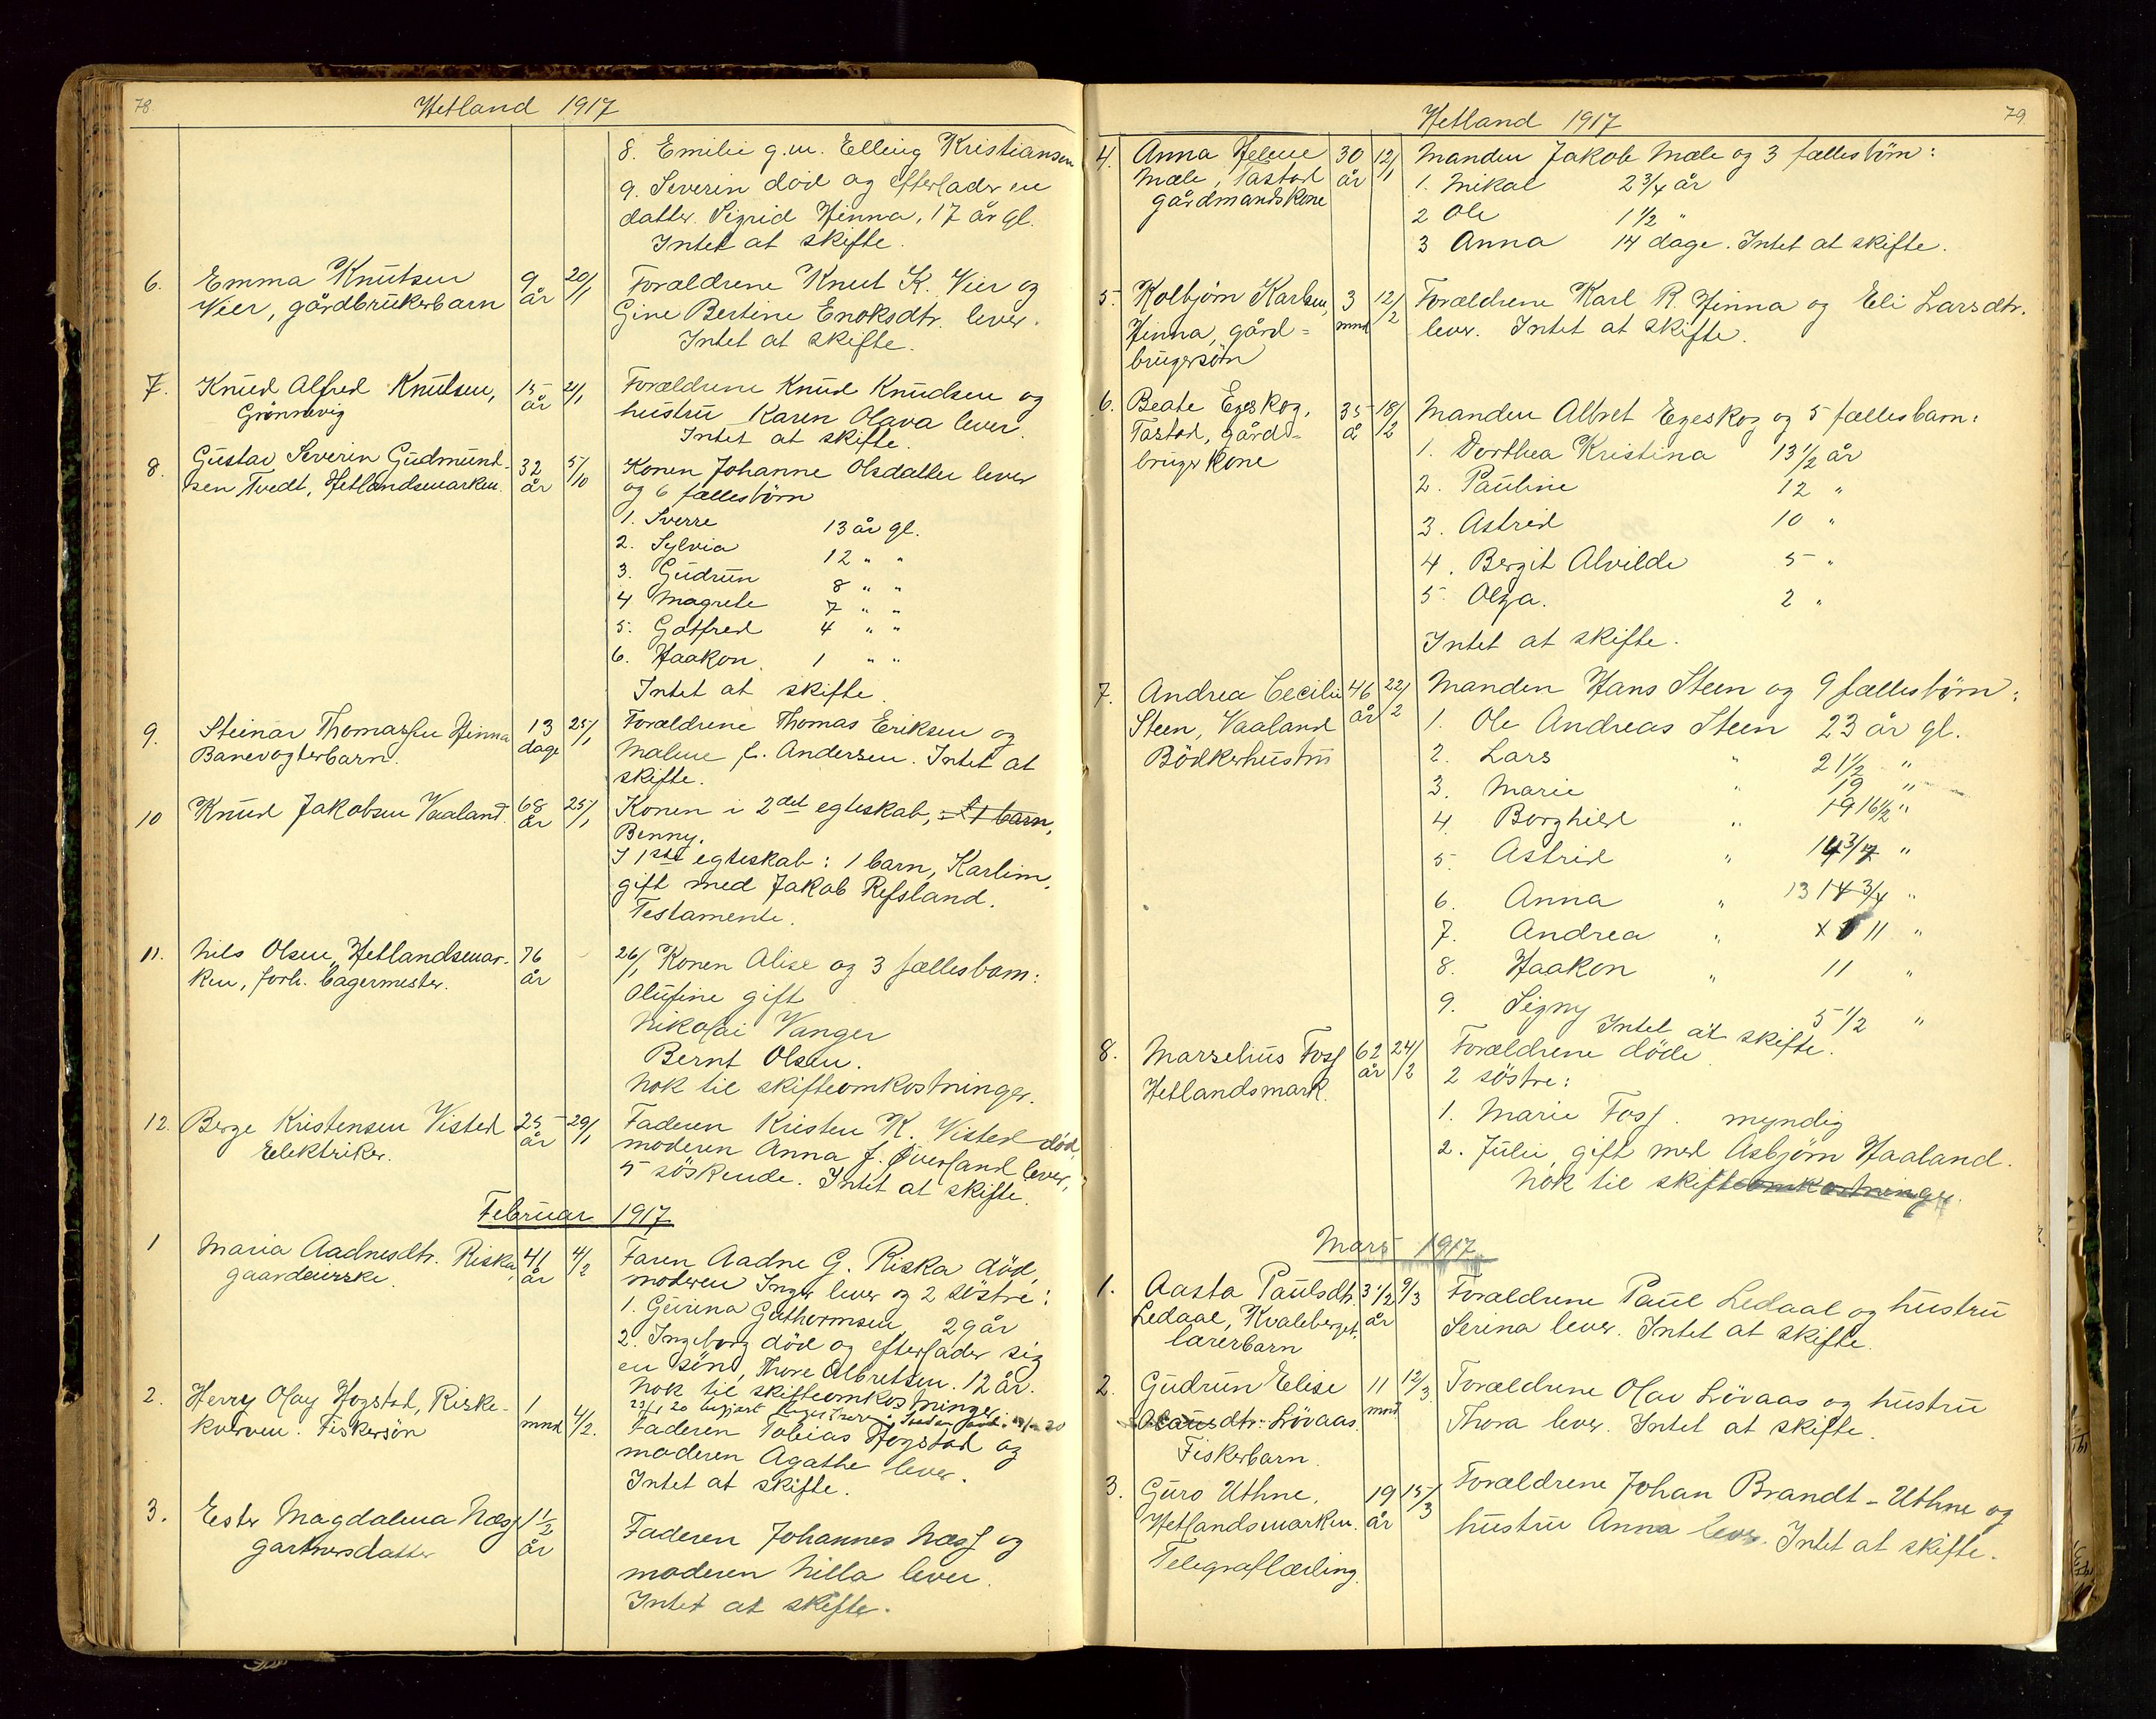 78.
Hetland 1917
8. Emilie g.m. Elling Kristiansen
9. Severin död og efterlader en
datter Sigrid Hinna, 17 år gl.
Intet at skifte.
6. Emma Knutsen 9 20/1 Forældrene Knut K. Vier og
Vier, gårdbrukerbarn år Gine Bertine Enoksdtr. lever.
Intet at skifte.
7. Knud Alfred Knutsen, 15 21/1 Forældrene Knud Knudsen og
Grönnevig år hustru Karen Olava lever.
Intet at skifte.
8. Gustav Severin Gudmund- 32 5/10 Konen Johanne Olsdatter lever
sen Tvedt, Hetlandsmarken. år og 6 fællesbörn
1. Sverre 13 år gl.
2. Sylvia 12 " "
3. Gudrun 8 " "
4 Magrete 7 " "
5. Gotfred 4 " "
6. Haakon. 1 " "
Intet at skifte.
9. Steinar Thomassen Hinna 13 25/1 Forældrene Thomas Eriksen og
Banevogterbarn. dage Malene f. Andersen. Intet at
skifte.
10 Knud Jakobsen Vaaland. 68 25/1 Konen i 2det egteskab, 1 barn,
år Benny.
I 1ste egteskab: 1 barn, Karlim,
gift med Jakob Refsland.
Testamente.
11. Nils Olsen, Hetlandsmar- 76 26/1 Konen Alise og 3 fællesbarn:
ken, forh. bagermester. år Olufine gift
Nikolai Vanger
Bernt Olsen.
Nok til skifteomkostninger.
12. Berge Kristensen Visted 25 29/1 Faderen Kristen K. Visted död,
Elektriker. år moderen Anna f. Överland lever,
5 söskende. Intet at skifte.
Februar 1917
1 Maria Aadnesdtr. Riska, 41 4/2 Faren Aadne G. Riska död,
gaardeierske. år moderen Inger lever og 2 söstre:
1. Gurina Guthormsen 29 år
2. Ingeborg död og efterlader sig
en sön, Thore Albretsen. 12 år.
Nok til skifteomkostninger.
2. Herry Olay Hogstad, Riske- 1 4/2. Faderen Tobias Hogstad og
kverven. Fiskersön mnd moderen Agathe lever.
Intet at skifte.
3. Ester Magdalena Næss 1½ Faderen Johannes Næss og
gartnersdatter år moderen Nilla lever.
Intet at skifte.
79
Hetland 1917
4. Anna Helene 30 12/1 Manden Jakob Mæle og 3 fællesbörn:
Mæle, Tastad år 1. Mikal 2¾ år
gårdmandskone 2 Ole 1½ "
3 Anna 14 dage. Intet at skifte.
5. Kolbjörn Karlsen, 3 12/2 Forældrene Karl R. Hinna og Eli Larsdtr.
Hinna, gård- mnd lever. Intet at skifte.
brugersön
6. Beate Egeskog, 35 18/2 Manden Albret Egeskog og 5 fællesbarn:
Tastad, gård- å 1. Dorthea Kristina 13½ år
bruger kone 2. Pauline 12 "
3. Astrid 10 "
4. Bergit Alvilde 5 "
5 Olga. 2 "
Intet at skifte.
7. Andrea Cecilie 46 22/2 Manden Hans Steen og 9 fællesbörn:
Steen, Vaaland år 1. Ole Andreas Steen 23 år gl.
Bödkerhustru 2. Lars " 21½ "
3. Marie " 19 "
4. Borghild " 19 16½ "
5 Astrid " "
6. Anna " 13 14 3/4 "
7. Andrea " 11 "
8. Haakon " 11 "
9. Signy 5½ "
Intet at skifte.
8. Marselius Foss 62 24/2 Forældrene döde
Hetlandsmark. år 2 söstre:
1. Marie Foss. myndig
2. Julie gift med Asbjörn Haaland.
Nok til skifteomkostninger.
Mars 1917
1. Aasta Paulsdtr. 3½ 9/3 Forældrene Paul Ledaal og hustru
Ledaal, Kvaleberget, år Serina lever. Intet at skifte.
lærerbarn
2. Gudrun Elise 11 12/3 Forældrene Olav Lövaas og hustru
dtr. Lövaas. mnd Thora lever. Intet at skifte.
Fiskerbarn.
3. Guro Uthne, 19 15/3 Forældrene Johan Brandt-Uthne og
Hetlandsmarken. år hustru Anna lever. Intet at skifte.
Telegraflærling.